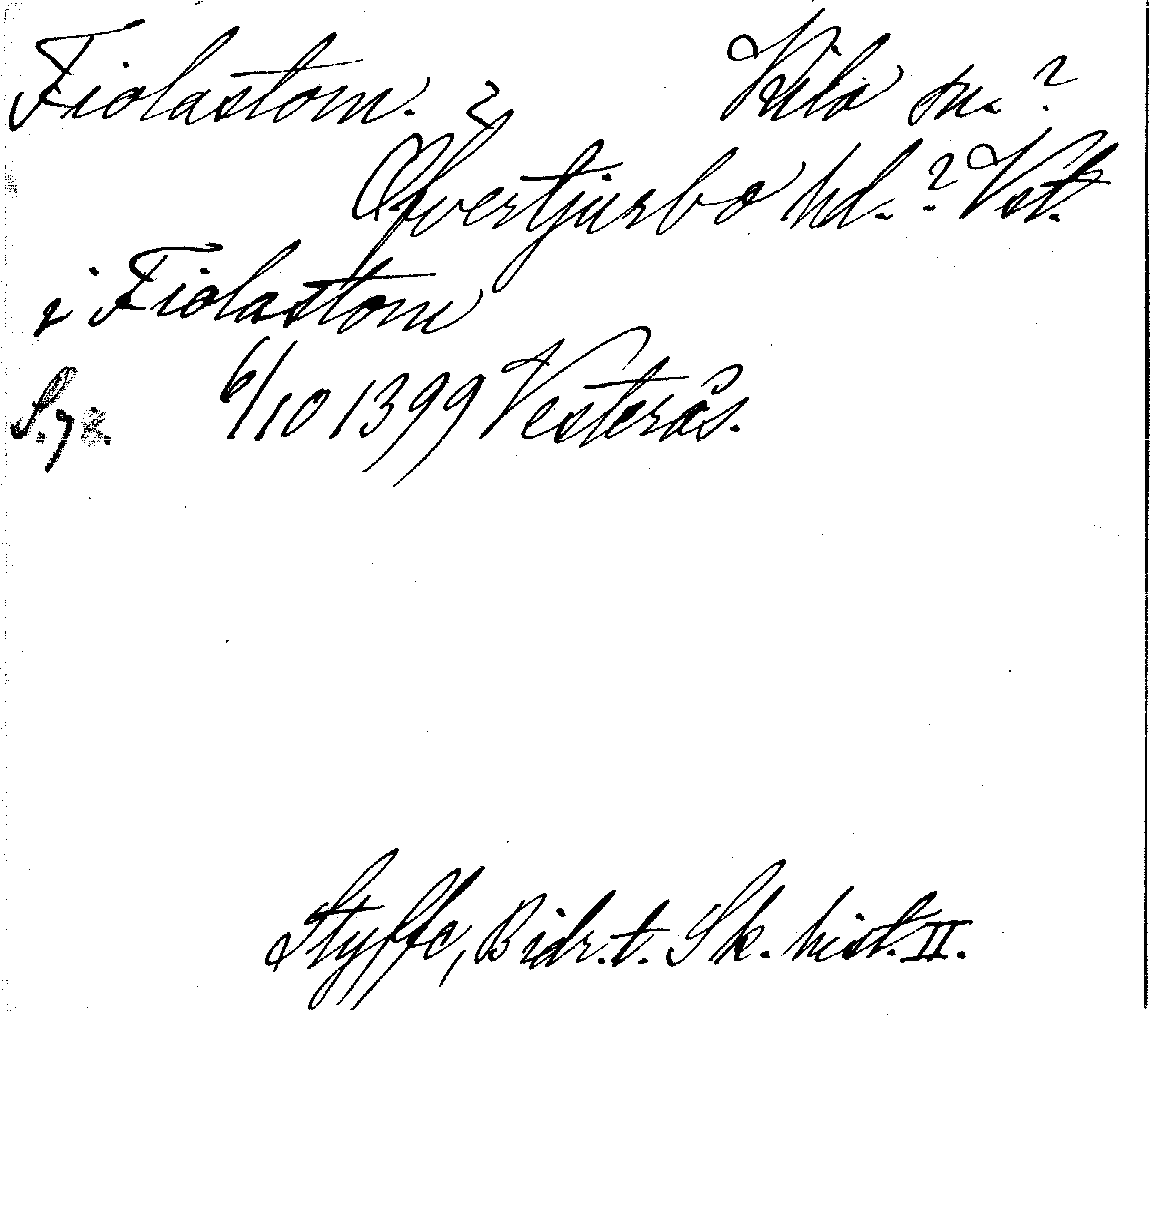 Fiolastom. ? Kila sn. ?
Öfvertjurbo hd. ? Vstl.
i Fiolastom
S. 78. 6/10 1399 Vesterås.
Styffe, Bidr. t. Sk. hist. II.